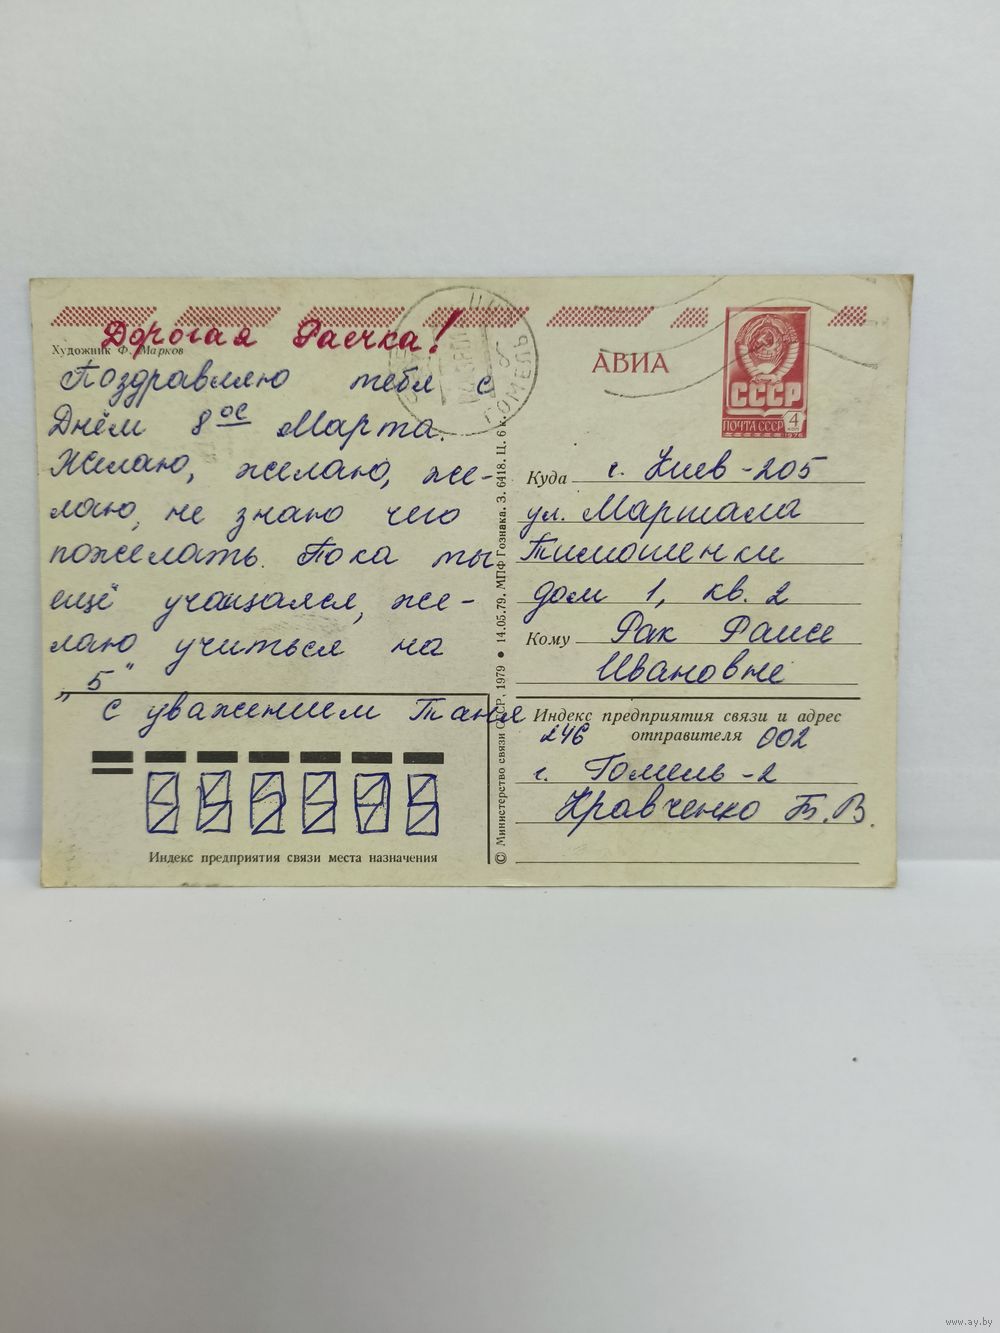 Дорогая Раечка!
Художник Ф. Марков
Поздравляю тебя с
Днём 8 ое Марта.
Желаю, желаю, же-
лаю, не знаю чего
пожелать. Пока ты
ещё учащаяся, же-
лаю учиться на
„5"
с уважением Таня
Индекс предприятия связи места назначения
© Министерство связи СССР, 1979 • 14.05.79. МПФ Гознака. З. 6418. Ц. 6 к.
ГОМЕЛЬ
АВИА
СССР
ПОЧТА СССР
4
КОП
1976
Куда г. Киев-205
ул. Маршала
Тимошенки
дом 1, кв. 2
Кому Рак Раисе
Ивановне
Индекс предприятия связи и адрес
отправителя
246 002
г. Гомель-2
Кравченко Т.В.
www.ay.by